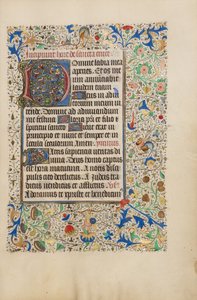 Incipiunt hore de sancta cruce
Domine labia mea
aperies. Et os meum
annunciabit
laudem tuam
Deus in adiu
torium meum in
tende. Domine ad adiuvandum
me festina. Gloria patri et filio et
spiritui sancto. Sicut erat in
principio et nunc et semper et in
secula seculorum Amen.
Patris sapientia veritas di
vina. Deus homo captus
est hora matutina.
suis derelictus. A iudeis
traditus venditus et afflictus.
Adoramus te christe et benedicim